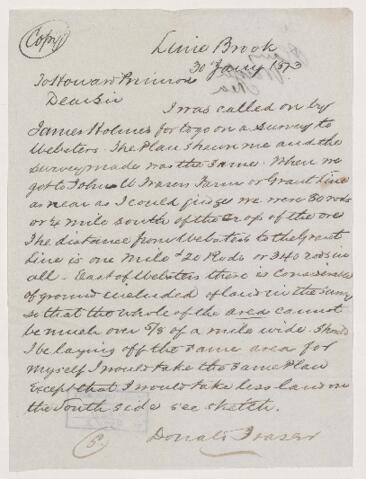 (Copy)
Lime Brook
30 Jany 1873
To Howard Primrose
Dear Sir
I was called on by
James Holmes for to go on a survey to
Websters. The Plan shewn me and the
survey made was the same. When we
got to John W Frasers Farm or Grant Line
as near as I could judge we were 80 rods
or ¼ mile south of the Crop of the ore
The distance from Websters to the Grant
Line is one Mile & 20 Rods or 340 rods in
all - East of Websters there is
of ground included of laws in the
so that the whole of the area cannot
be much over 5/8 of a mile wide. Should
I be laying off the same area for
myself I would take the same Plan
Except that I would take less land on
the South side see sketch.
Donald Fraser